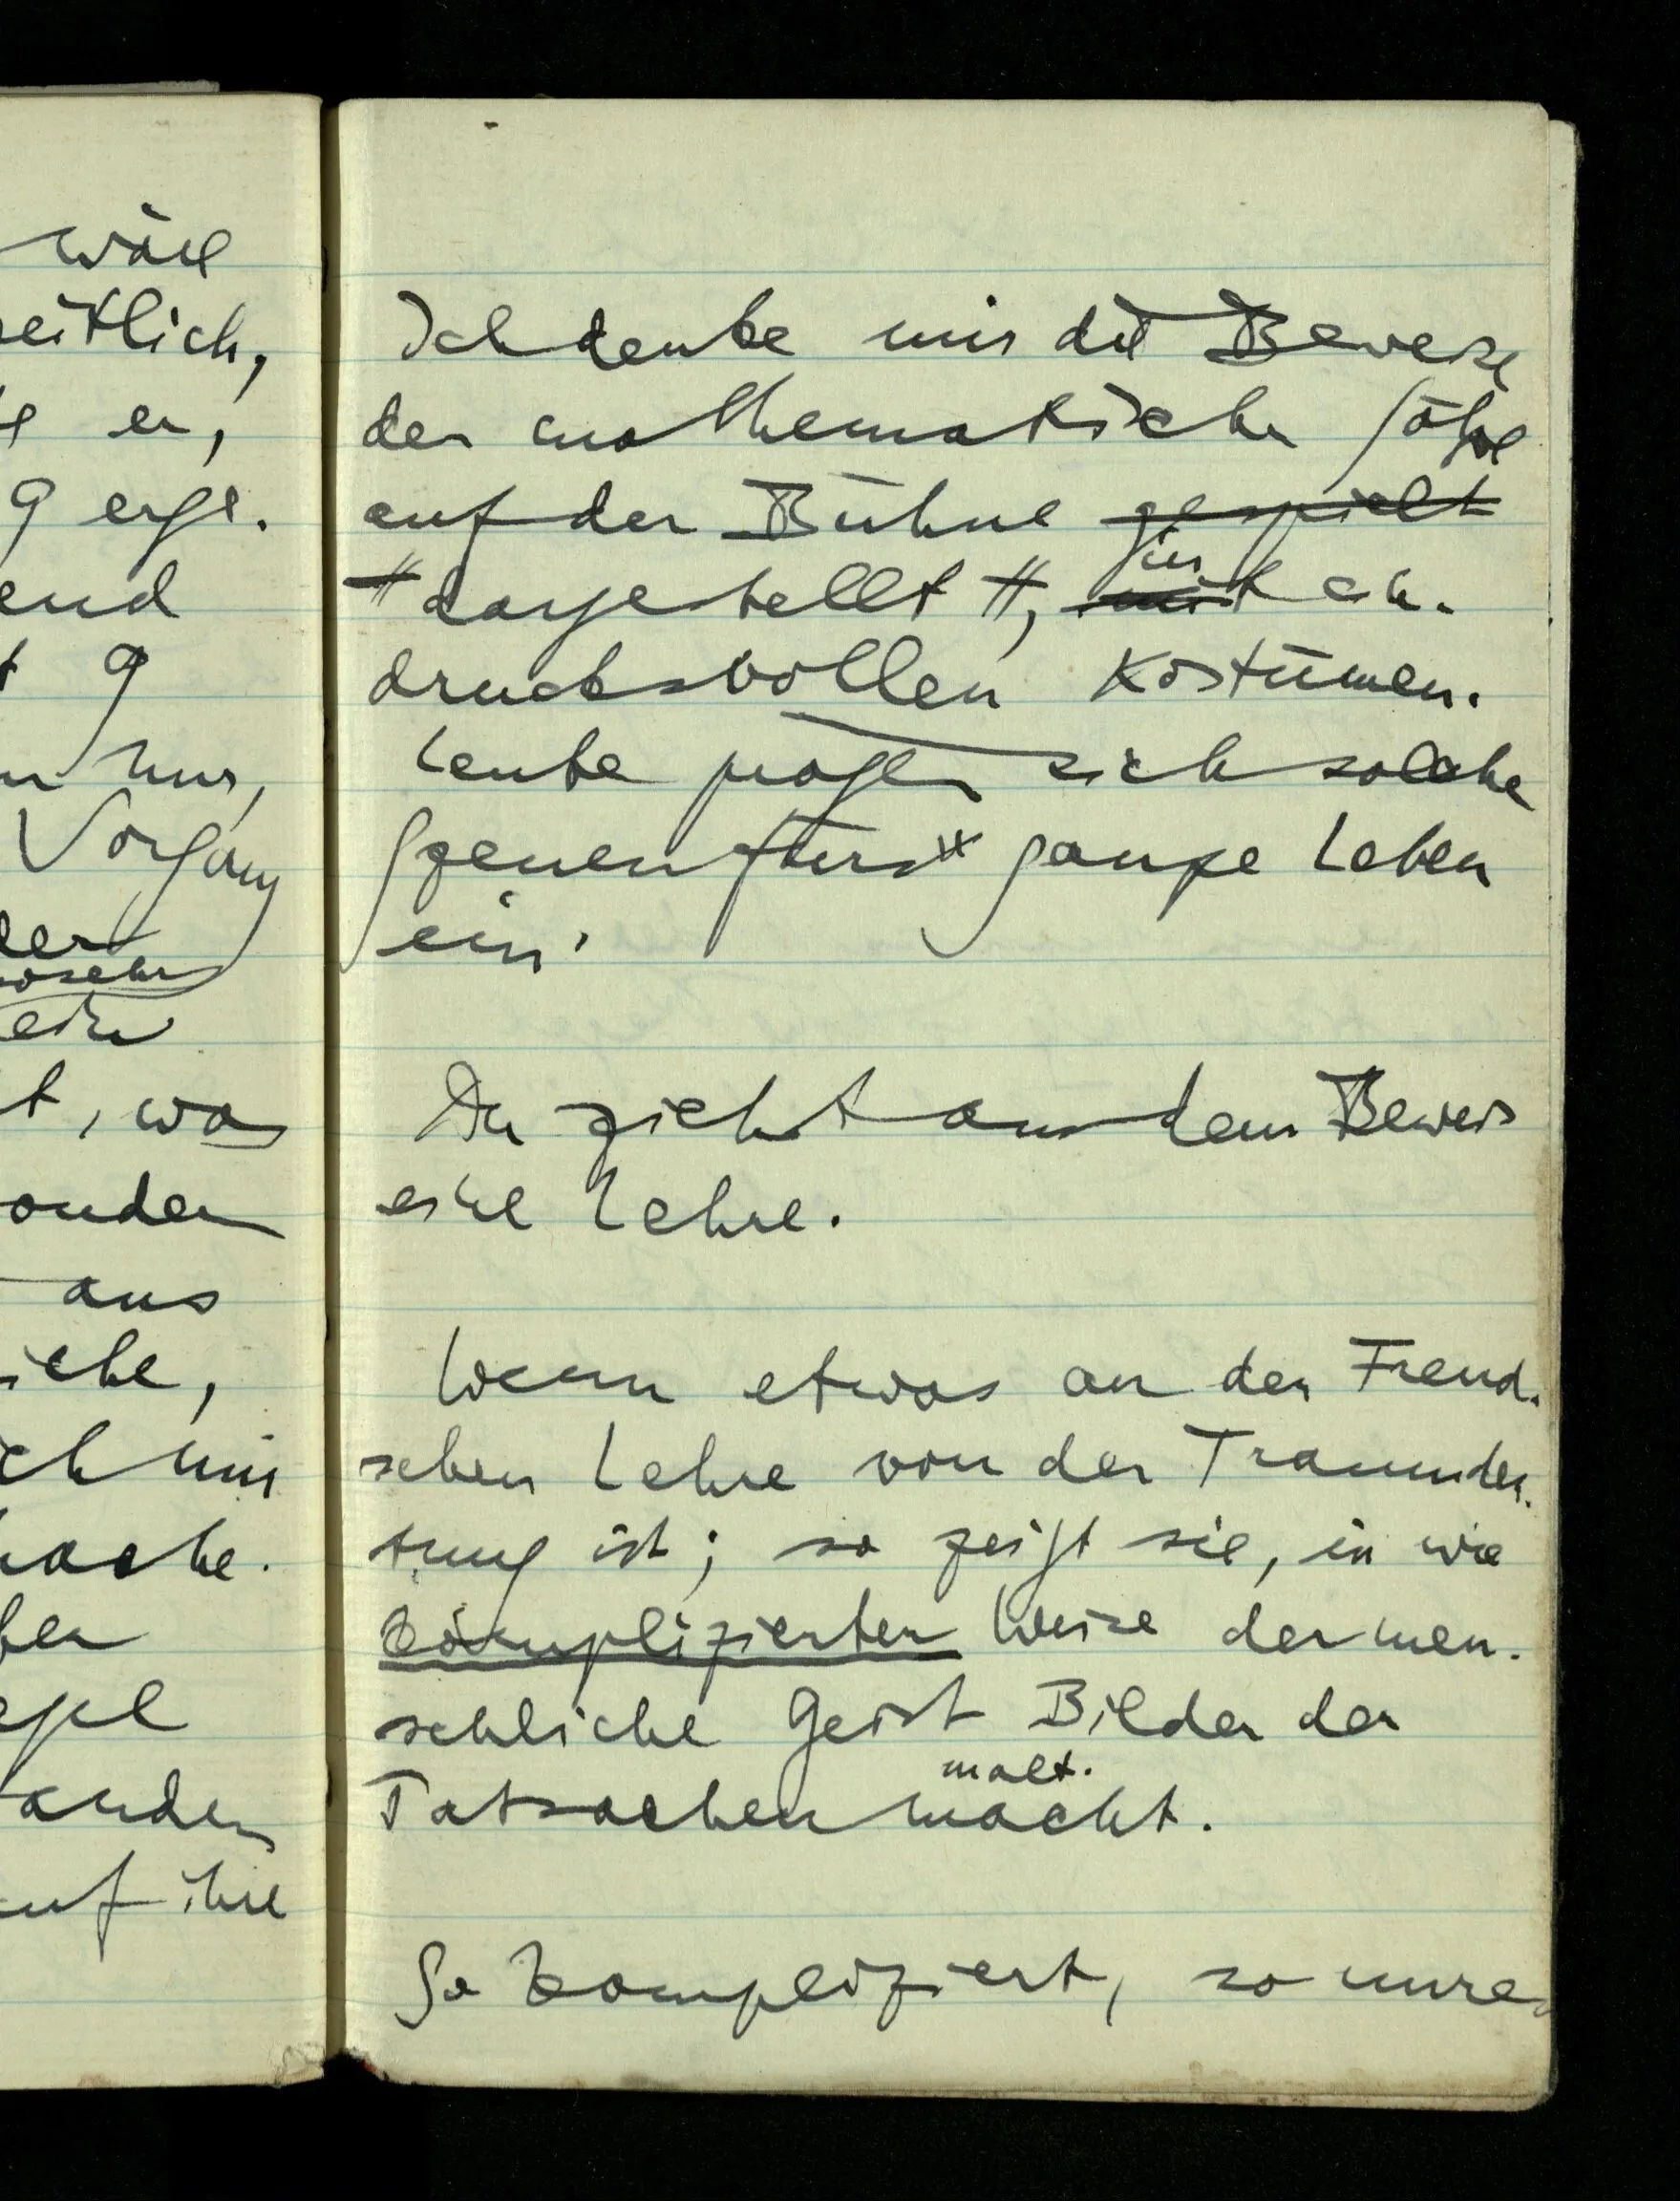 wäre
eitlich,
er,
9 erge.
end
9
nur,
Vorgang
der
ein
t, wo
onder
aus
iche,
ich mir
ache.
ber
egel
ander
auf ihre
Ich denke mir die Beweise
der mathematischen Sätze
auf der Bühne gespielt
"dargestellt", in mit ein-
drucksvollen Kostümen.
Leute prägen sich solche
Szenen fürs ganze Leben
ein.
Du ziehst aus dem Beweis
eine Lehre.
Wenn etwas an der Freud-
schen Lehre von der Traumdeu-
tung ist; so zeigt sie, in wie
komplizierter Weise der men-
schliche Geist Bilder der
malt.
Tatsachen macht.
So kompliziert, so unre-